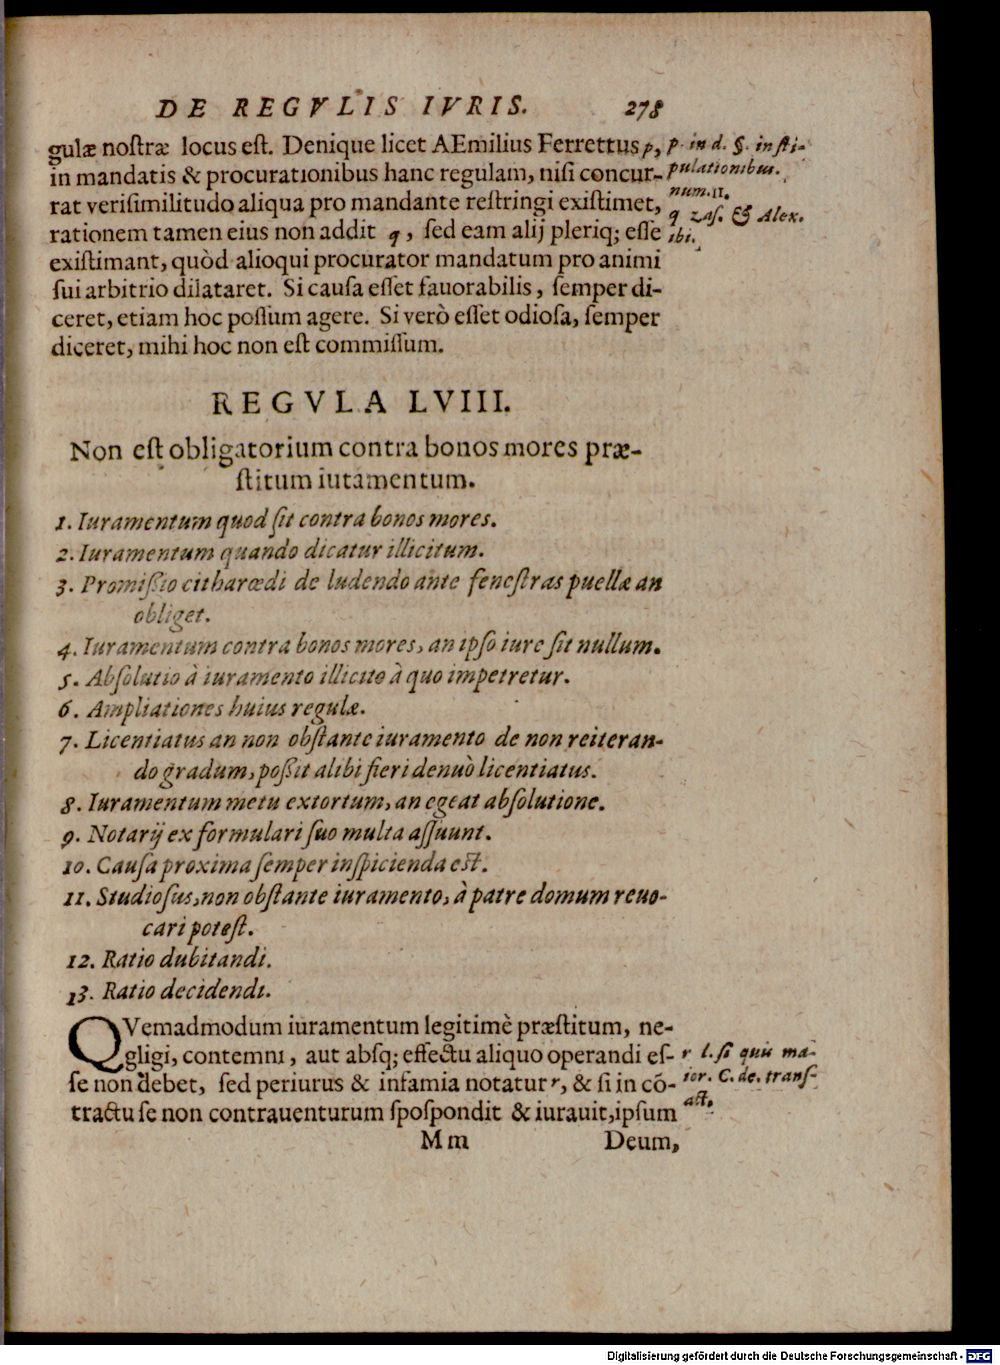 DE REGVLIS IVRIS. 278
gulæ noſtræ locus eſt. Denique licet AEmilius Ferrettus p,
in mandatis & procurationibus hanc regulam, niſi concur-
rat veriſimilitudo aliqua pro mandante reſtringi exiſtimet,
rationem tamen eius non addit q, ſed eam alij pleriq; eſſe
exiſtimant, quòd alioqui procurator mandatum pro animi
ſui arbitrio dilataret. Si cauſa eſſet fauorabilis, ſemper di-
ceret, etiam hoc poſſum agere. Si verò eſſet odioſa, ſemper
diceret, mihi hoc non eſt commiſſum.
p. in d. §. in ſti-
pulationibus.
num. 11.
q Zaſ. & Alex.
ibi.
REGVLA LVIII.
Non eſt obligatorium contra bonos mores præ-
ſtitum iutamentum.
1. Iuramentum quod ſit contra bonos mores.
2. Iuramentum quando dicatur illicitum.
3. Promiſsio citharœdi de ludendo ante feneſtras puellæ an
obliget.
4. Iuramentum contra bonos mores, an ipſo iure ſit nullum.
5. Abſolutio à iuramento illicito à quo impetretur.
6. Ampliationes huius regulæ.
7. Licentiatus an non obſtante iuramento de non reiteran-
do gradum, poſsit alibi fieri denuò licentiatus.
8. Iuramentum metu extortum, an egeat abſolutione.
9. Notarij ex formulari ſuo multa aſſuunt.
10. Cauſa proxima ſemper inſpicienda eſt.
11. Studioſus, non obſtante iuramento, à patre domum reuo-
cari poteſt.
12. Ratio dubitandi.
13. Ratio decidendi.
QVemadmodum iuramentum legitimè præſtitum, ne-
gligi, contemni, aut abſq; effectu aliquo operandi eſ-
ſe non debet, ſed periurus & infamia notatur r, & ſi in cō-
tractu ſe non contrauenturum ſpoſpondit & iurauit, ipſum
r l. ſi quis ma-
ior. C. de. tranſ-
act.
Mm Deum,
Digitalisierung gefördert durch die Deutsche Forschungsgemeinschaft - DFG